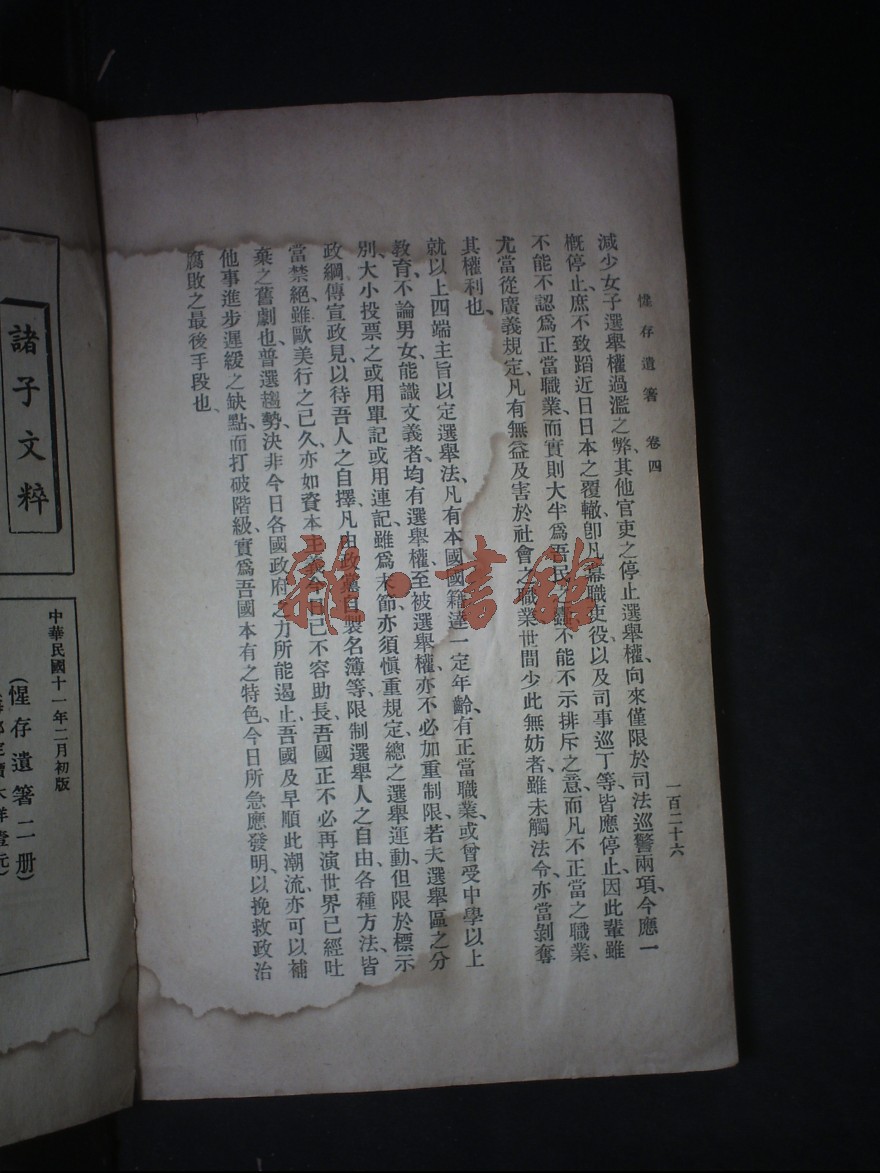 惺存遺箸 卷四
一百二十六
減少女子選舉權過濫之弊、其他官吏之停止選舉權、向來僅限於司法巡警兩項、今應一
概停止、庶不致蹈近日日本之覆轍、卽凡幕職吏役以及司事巡丁等、皆應停止、因此輩雖
不能不認爲正當職業、而實則大半爲吾民之蠹、不能不示排斥之意、而凡不正當之職業、
尤當從廣義規定、凡有無益及害於社會之職業、世間少此無妨者、雖未觸法令、亦當剝奪
其權利也、
就以上四端主旨以定選舉法、凡有本國國籍、達一定年齡、有正當職業、或曾受中學以上
教育、不論男女、能識文義者、均有選舉權、至被選舉權、亦不必加重制限、若夫選舉區之分
別、大小投票之或用單記或用連記、雖爲末節、亦須愼重規定、總之選舉運動、但限於標示
政綱、傳宣政見、以待吾人之自擇、凡由政黨自製名簿等、限制選舉人之自由各種方法、皆
當禁絕、雖歐美行之已久、亦如資本主義、今日已不容助長、吾國正不必再演世界已經吐
棄之舊劇也、普選趨勢、決非今日各國政府之力所能遏止、吾國及早順此潮流、亦可以補
他事進步遲緩之缺點、而打破階級、實爲吾國本有之特色、今日所急應發明、以挽救政治
腐敗之最後手段也、
雜·書館
諸子文粹
中華民國十一年二月初版
(惺存遺箸二册)